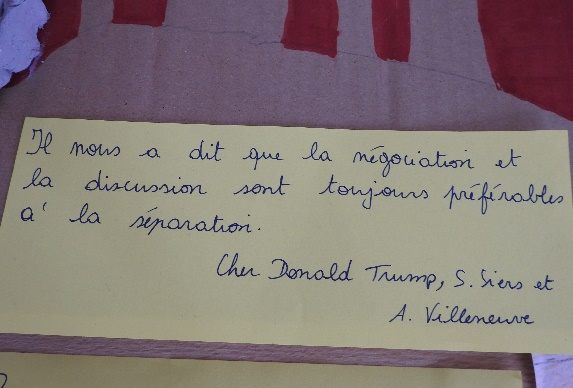 Il nous a dit que la négociation et
la discussion sont toujours préférables
a' la séparation.
Cher Donald Trump, S. Siers et
A. Villeneuve